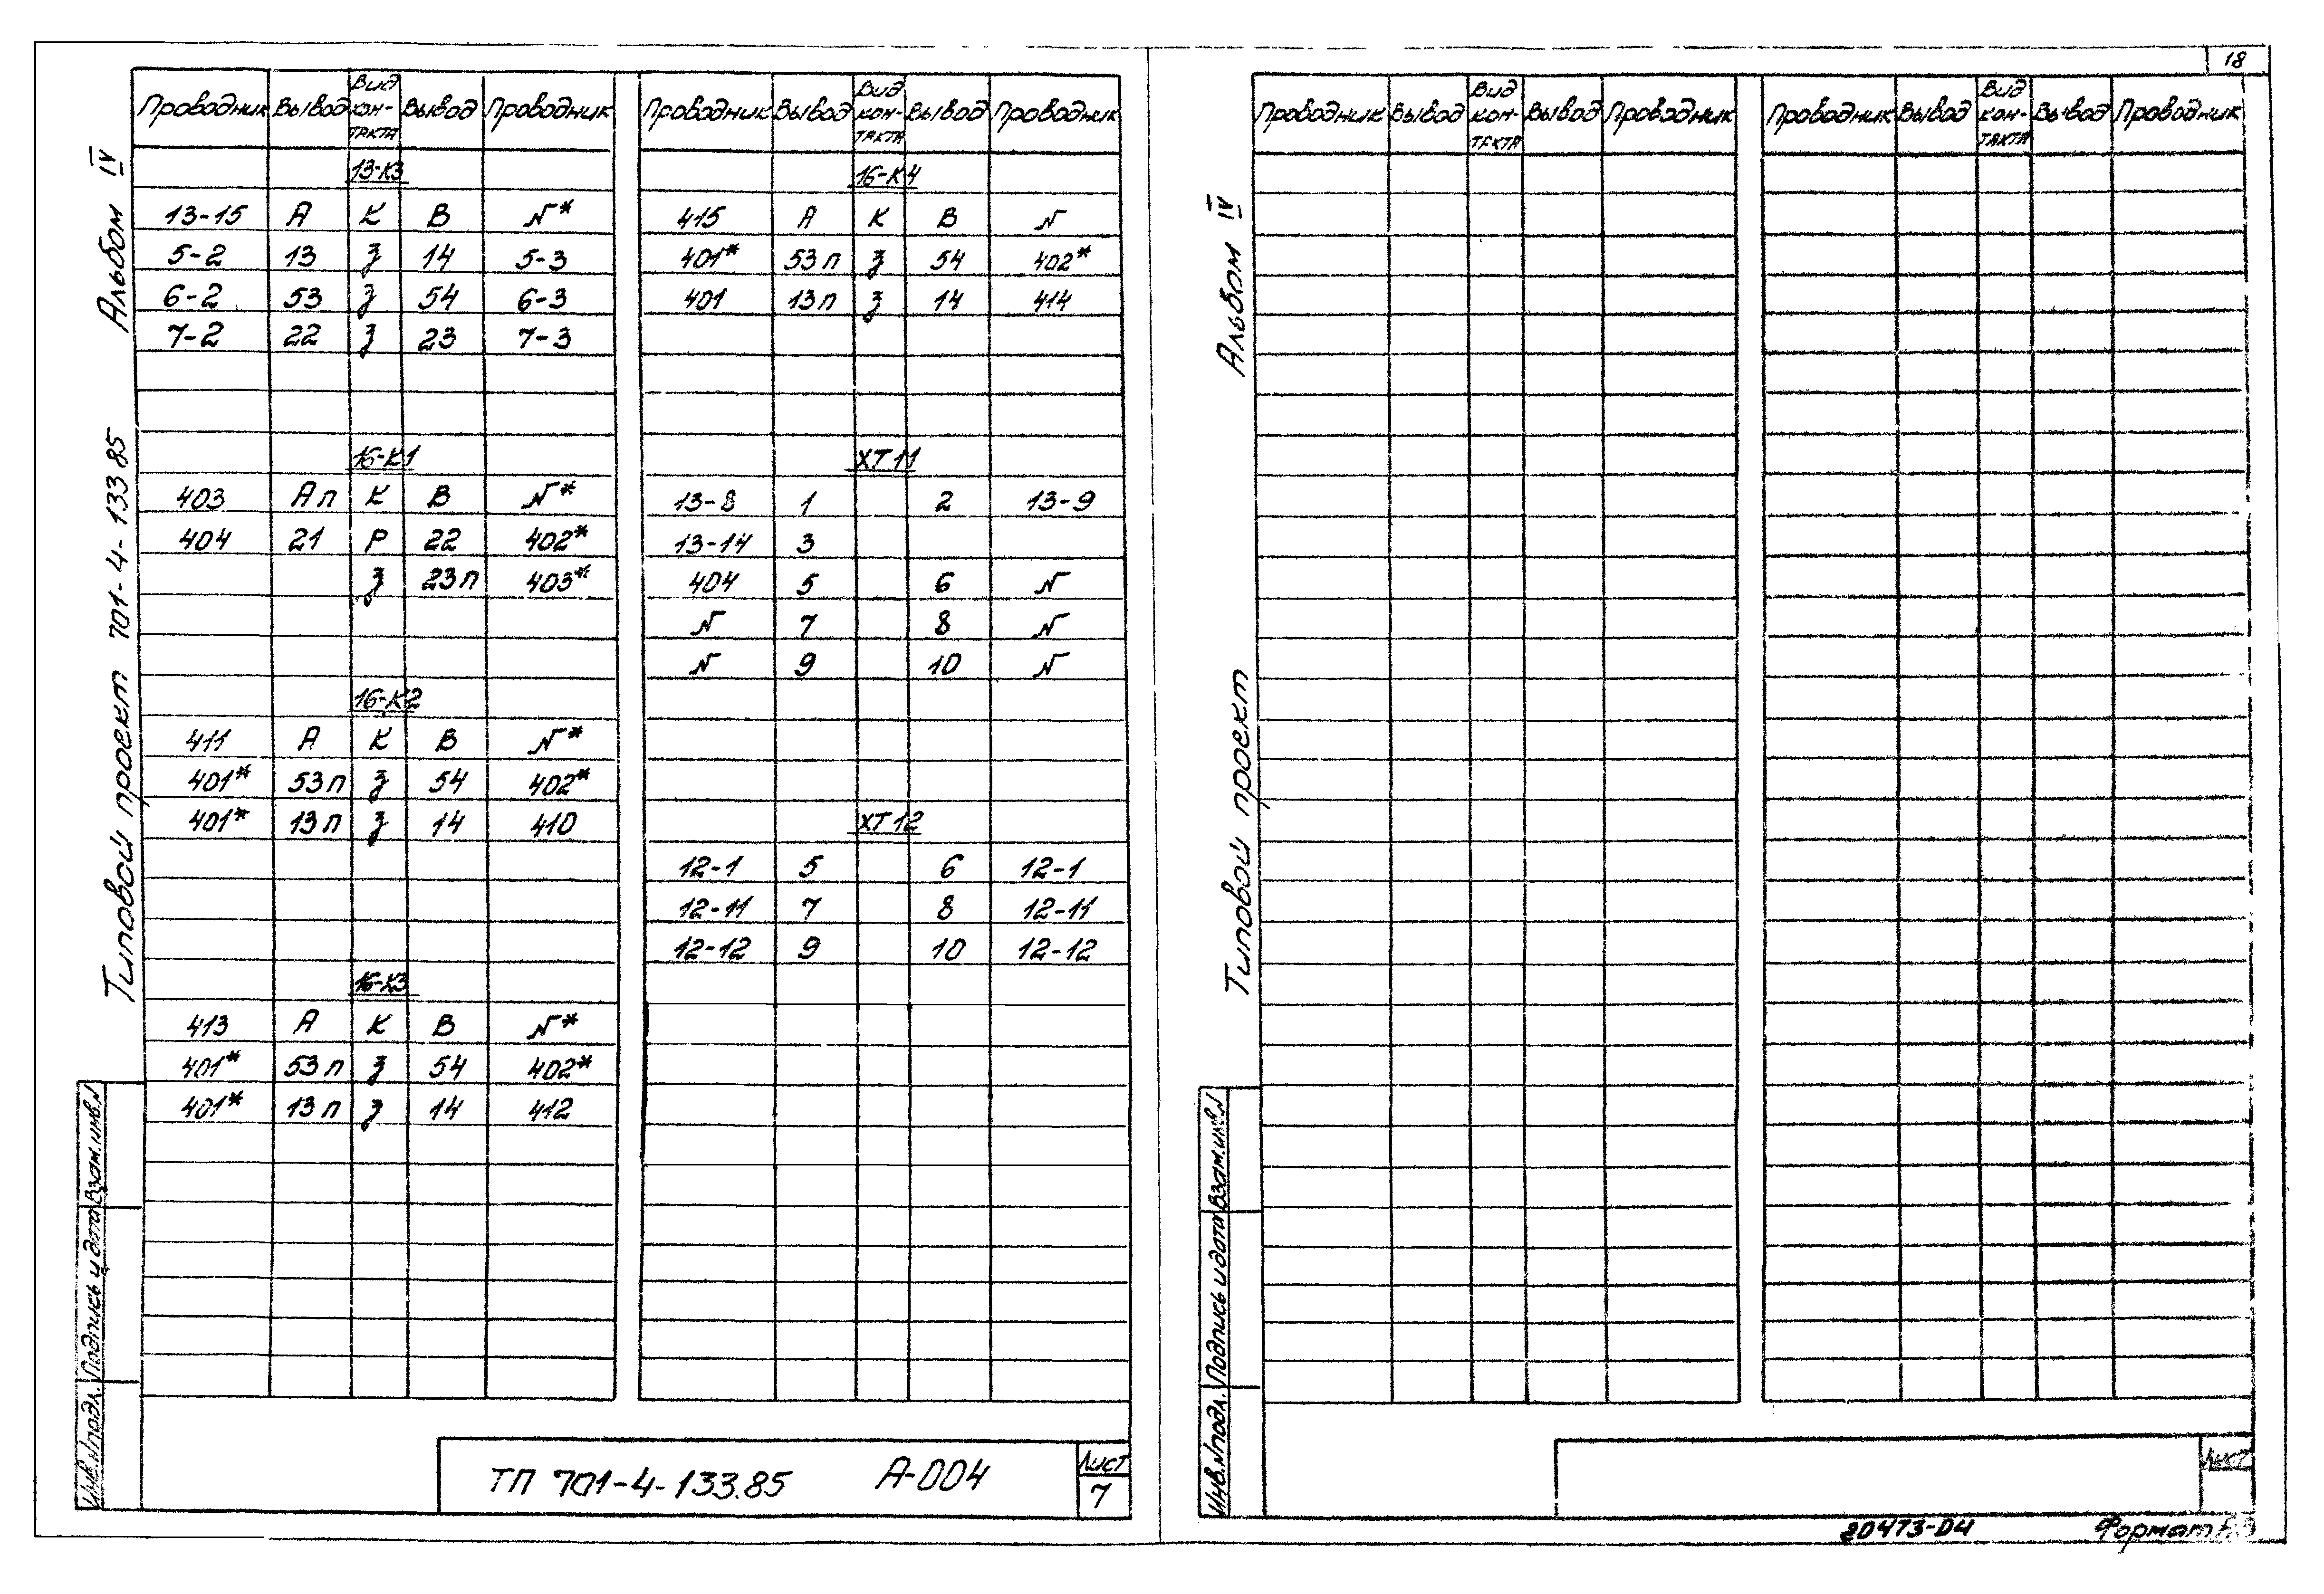 18
Проводник Вывод Вид кон-такта Вывод Проводник
13-К3
13-15 А К В N*
5-2 13 з 14 5-3
6-2 53 з 54 6-3
7-2 22 з 23 7-3
16-К1
403 Ап К В N*
404 21 Р 22 402*
з 23п 403*
16-К2
411 А К В N*
401* 53п з 54 402*
401* 13п з 14 410
16-К3
413 А К В N*
401* 53п з 54 402*
401* 13п з 14 412
Проводник Вывод Вид кон-такта Вывод Проводник
16-К4
415 А К В N
401* 53п з 54 402*
401 13п з 14 414
ХТ11
13-8 1 2 13-9
13-14 3
404 5 6 N
N 7 8 N
N 9 10 N
ХТ12
12-1 5 6 12-1
12-11 7 8 12-11
12-12 9 10 12-12
Типовой проект 701-4-133 85 Альбом IV
Инв.N подл. Подпись и дата Взам.инв.N
ТП 701-4-133.85 А-004
Лист
7
Проводник Вывод Вид кон-такта Вывод Проводник
Проводник Вывод Вид кон-такта Вывод Проводник
Типовой проект Альбом IV
Инв.N подл. Подпись и дата Взам.инв.N
Лист
20473-04 Формат А3